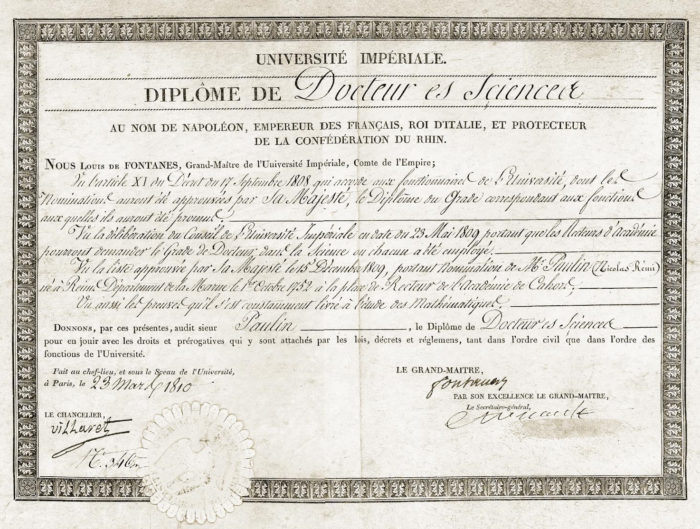 UNIVERSITÉ IMPÉRIALE.
DIPLÔME DE Docteur es Sciences
AU NOM DE NAPOLÉON, EMPEREUR DES FRANÇAIS, ROI D'ITALIE, ET PROTECTEUR
DE LA CONFÉDÉRATION DU RHIN.
NOUS LOUIS DE FONTANES, Grand-Maître de l'Université Impériale, Comte de l'Empire;
Vu l'article XI du Décret du 17 Septembre 1808 qui accorde aux fonctionnaires de l'Université, dont les
Nominations auront été approuvées par Sa Majesté, le Diplôme du Grade correspondant aux fonctions
auxquelles ils auront été promus;
Vu la délibération du Conseil de l'Université Impériale en date du 23 Mai 1809 portant que les Recteurs d'Académie
pourront demander le Grade de Docteur, dans la Science où chacun a été employé;
Vu la liste approuvée par Sa Majesté le 15 Décembre 1809, portant nomination de Mr. Paulin (Nicolas Remi)
né à Reims Département de la Marne le 1er Octobre 1752 à la place de Recteur de l'Académie de Cahors;
Vu aussi les preuves qu'il s'est constamment livré à l'étude des Mathématiques,
DONNONS, par ces présentes, audit sieur Paulin, le Diplôme de Docteur es Sciences
pour en jouir avec les droits et prérogatives qui y sont attachés par les lois, décrets et réglemens, tant dans l'ordre civil que dans l'ordre des
fonctions de l'Université.
Fait au chef-lieu, et sous le Sceau de l'Université,
à Paris, le 23 Mars 1810
LE GRAND-MAITRE,
Fontanes
PAR SON EXCELLENCE LE GRAND-MAITRE,
Le Secrétaire-général,
LE CHANCELIER,
Villaret